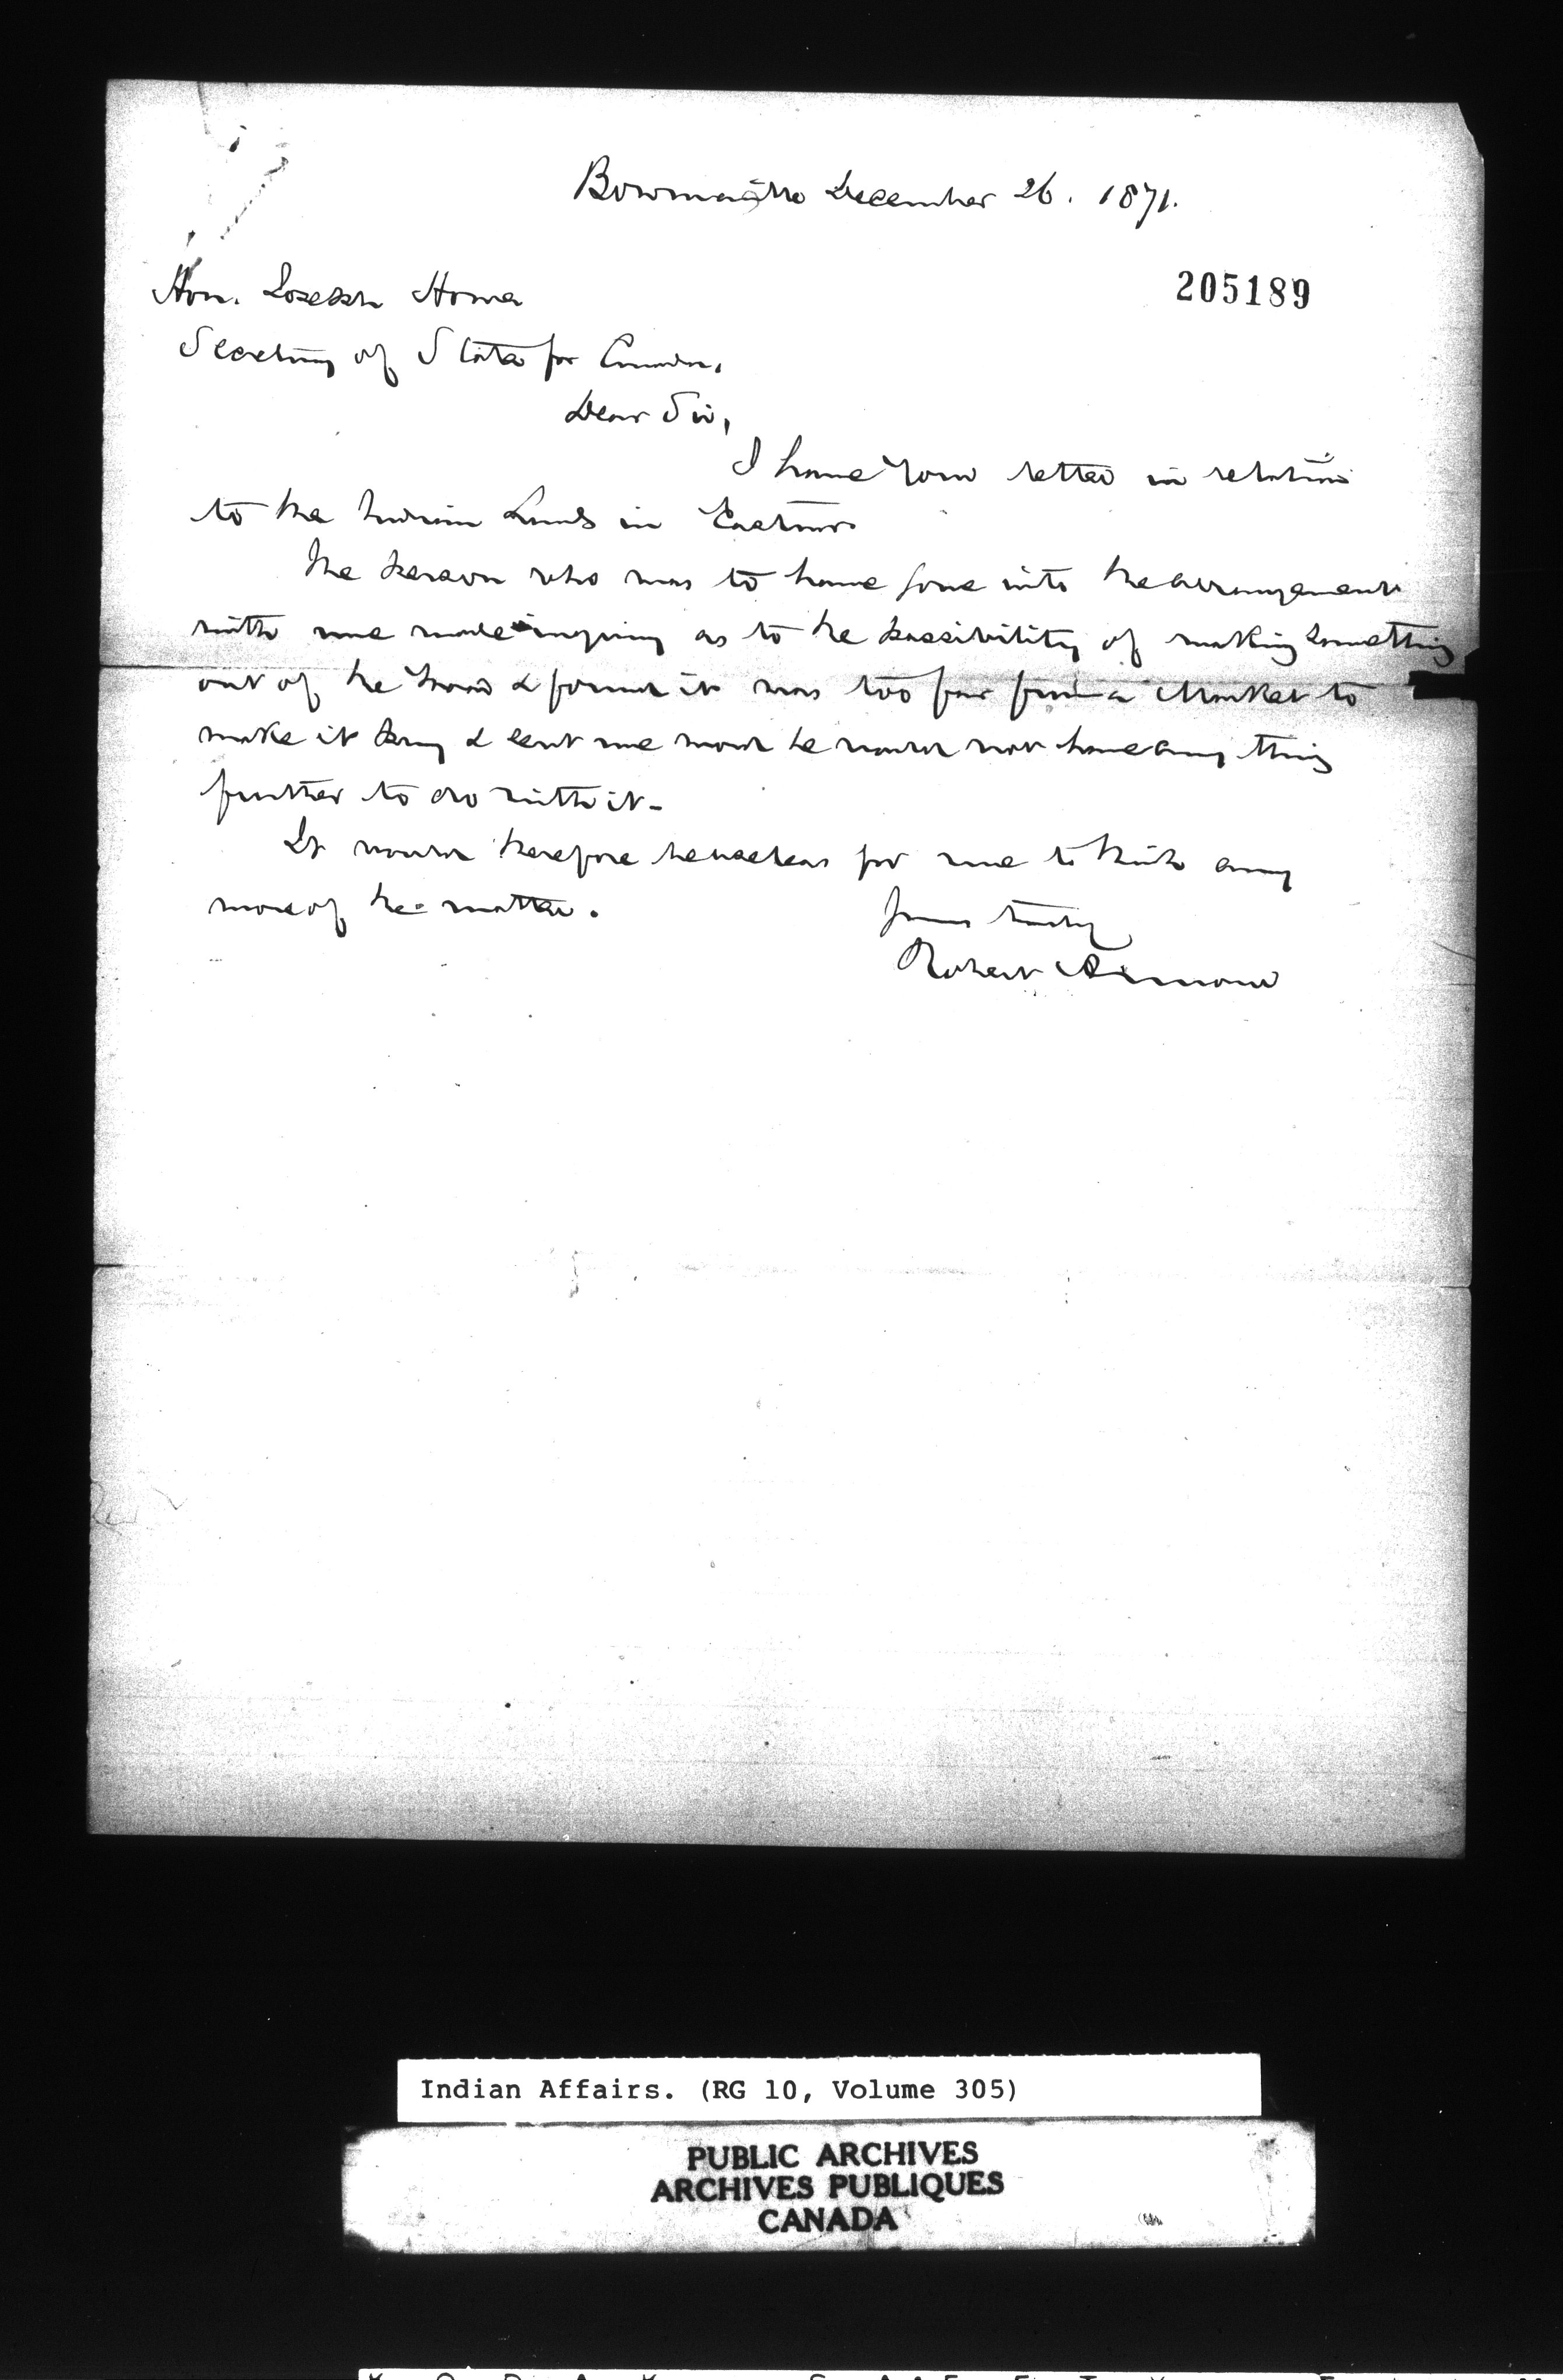 Bowmanville December 26. 1871.
205189
Hon. Joseph Howe
Secretary of State for Canada.
Dear Sir,
I have your letter in relation
to the Indian Lands in
The person who was to have gone into the arrangement
with me made inquiry as to the possibility of making something
out of the wood & found it was too far from a Market to
make it pay & sent me word he would not have any thing
further to do with it -
It would therefore be useless for me to think any
more of the matter.
Yours truly
Robert Armour
Indian Affairs. (RG 10, Volume 305)
PUBLIC ARCHIVES
ARCHIVES PUBLIQUES
CANADA